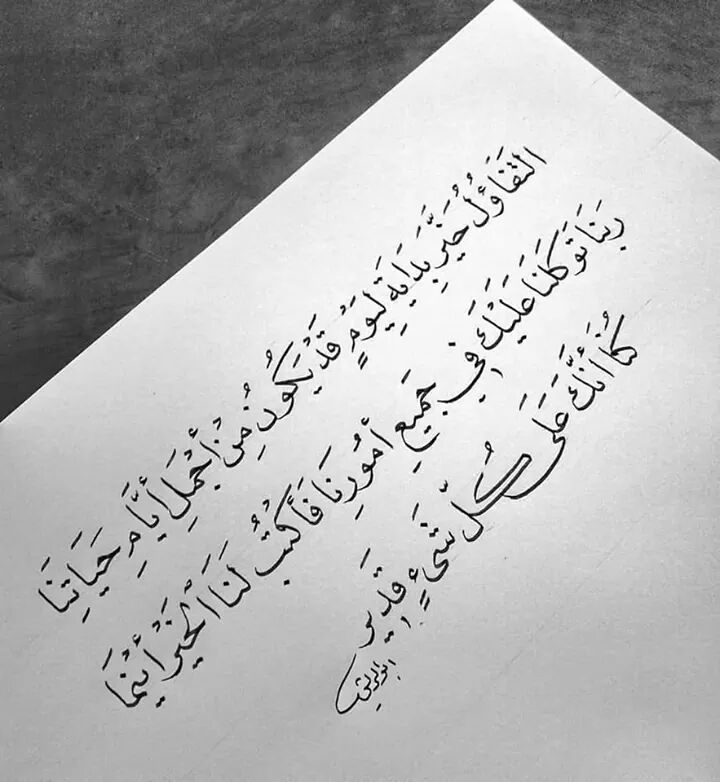 التَفَاؤُلُ خَيْرُ بَدَايَةٍ لِيَوْمٍ قَدْ يَكُونُ مِنْ أَجْمَلِ أَيَّامِ حَيَاتِنَا
رَبَنَا تَوَكَلنَا عَلَيْكَ فِي جَمَيعِ أمُورِنَا فَأكْتُبْ لَنَا الْخَيْرَ أَيْنَمَا
كُنَا أَنَّكَ عَلَى كُلِّ شَيءٍ قَدِير